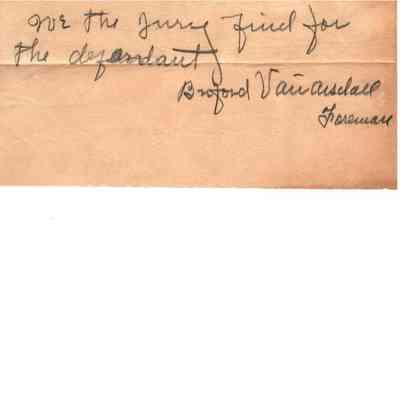 We the Jury find for
the defandant
Buford Vanarsdall
Foreman